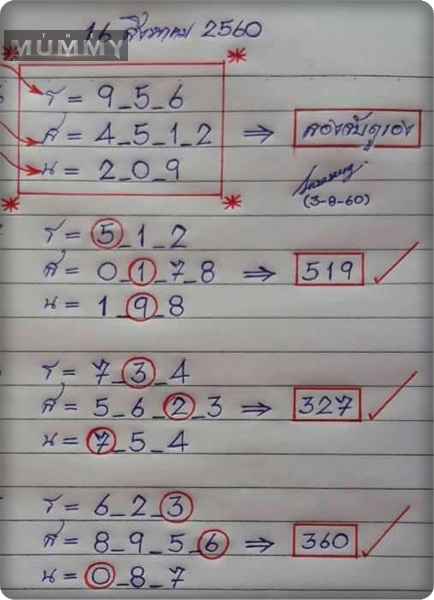 16 สิงหาคม 2560
MUMMY
ร = 9_5_6
ส = 4_5_1_2 ⇒ ลองจับดูเอง
น = 2_0_9
(3-8-60)
ร = 5_1_2
ส = 0_1_7_8 ⇒ 519
น = 1_9_8
ร = 7_3_4
ส = 5_6_2_3 ⇒ 327
น = 7_5_4
ร = 6_2_3
ส = 8_9_5_6 ⇒ 360
น = 0_8_7